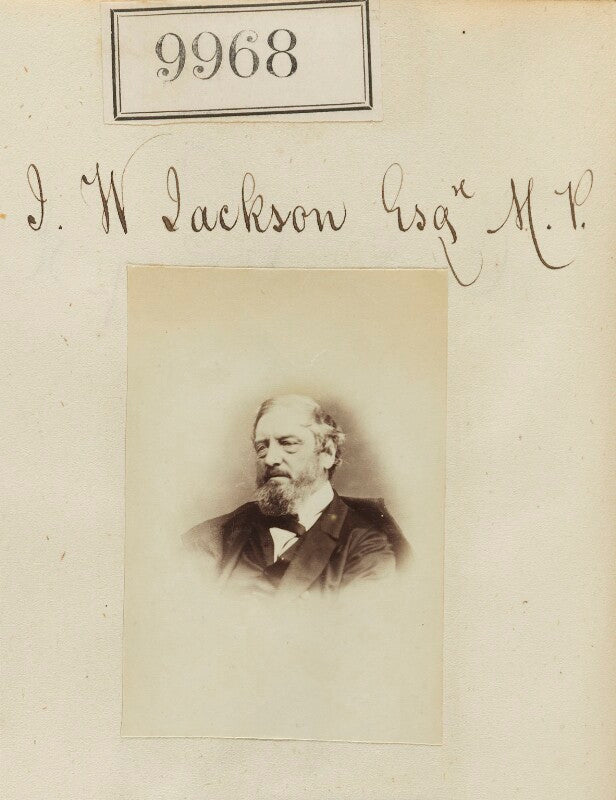 9968
J. W Jackson Esqre M.P.